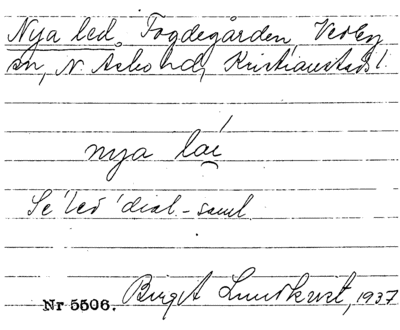 Nya led, Fogdegården, Verby
sn, N. Åsbo hd, Kristianstads l
nya lai
Se 'led' dial-saml
Birgit Lundkvist, 1937
Nr 5506.